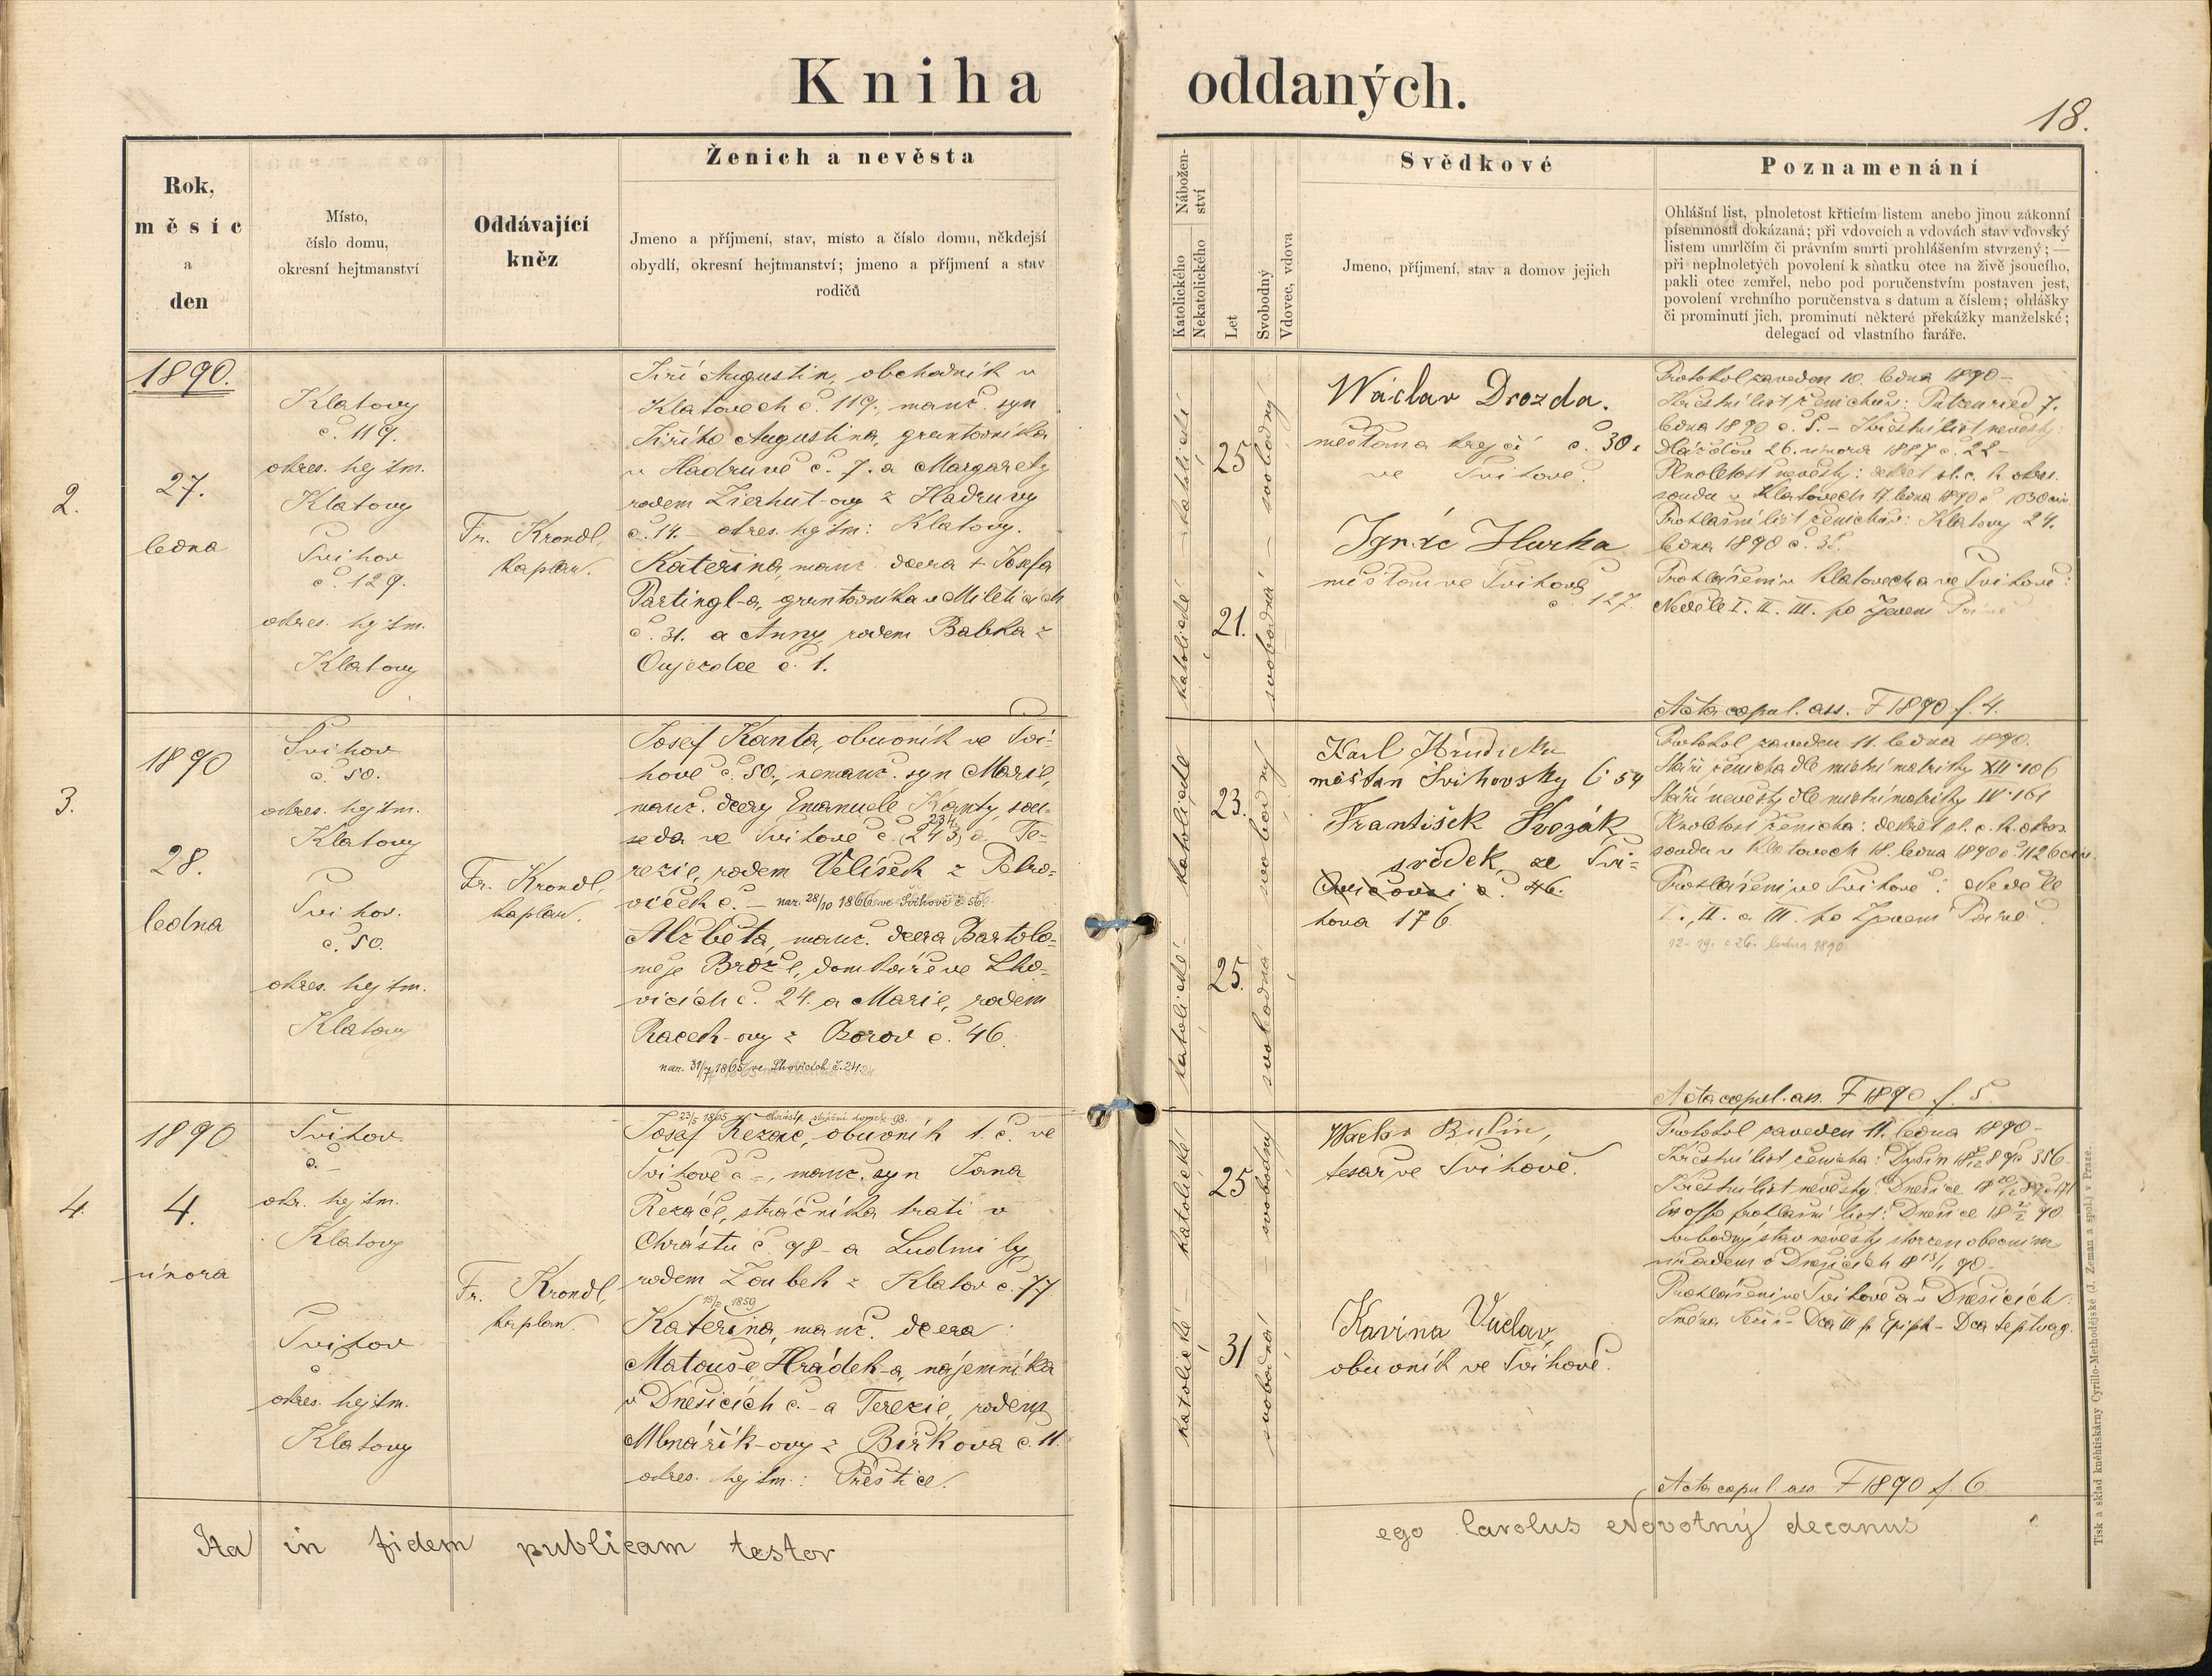 Kniha oddaných.
18.
Rok,
měsíc
a
den
Místo,
číslo domu,
okresní hejtmanství
Oddávající
kněz
Ženich a nevěsta
Jmeno a příjmení, stav, místo a číslo domu, někdejší
obydlí, okresní hejtmanství; jmeno a příjmení a stav
rodičů
Nábožen-
ství
Katolického
Nekatolického
Let
Svobodný
Vdovec, vdova
Svědkové
Jmeno, příjmení, stav a domov jejich
Poznamenání
Ohlášní list, plnoletost křticím listem anebo jinou zákonní
písemností dokázaná; při vdovcích a vdovách stav vdovský
listem umrlčím či právním smrti prohlášením stvrzený; —
při neplnoletých povolení k sňatku otce na živě jsoucího,
pakli otec zemřel, nebo pod poručenstvím postaven jest,
povolení vrchního poručenstva s datum a číslem; ohlášky
či prominutí jich, prominutí některé překážky manželské;
delegací od vlastního faráře.
2.
1890.
27.
ledna
Klatovy
č. 119.
okres. hejtm.
Klatovy
Švihov
č. 129.
okres. hejtm.
Klatovy
Fr. Krondl,
kaplan.
Jiří Augustin, obchodník v
Klatovech č. 119., manž. syn
Jiřího Augustina, gruntovníka
v Hadruvě č. 7. a Margarety
rodem Zierhut-ovy z Hadruvy
č. 14. – okres. hejtm: Klatovy.
Kateřina, manž. dcera + Josefa
Partingl-a, gruntovníka v Mileticích
č. 31. a Anny, rodem Babka z
Oujezdce č. 1.
katolické — katolické
25
21.
svobodná — svobodný
Wáclav Drozda.
měšťana krejčí č. 30.
ve Švihově.
Ignác Hurka
měšťan ve Švihově
č. 127.
Protokol zaveden 10. ledna 1890 –
Křestní list ženichův: Putzenried 7.
ledna 1890 č. 5. – Křestní list nevěsty:
26. února 1887 č. 22 –
Plnoletost nevěsty: dekret st. c. k. okres.
soudu v Klatovech 17. ledna 1890 č. 1030 civ.
Prohlašní list ženichův: Klatovy 24.
ledna 1890 č. 35.
Prohlášeni v Klatovech a ve Švihově:
Neděle I. II. III. po Zjevení Páně
Acta copul. ass. F 1890 f. 4.
3.
1890
28.
ledna
Švihov
č. 50.
okres. hejtm.
Klatovy
Švihov.
č. 50.
okres. hejtm.
Klatovy
Fr. Krondl,
kaplan.
Josef Kanta, obuvník ve Švi-
hově č. 50., nemanž. syn Marie,
manž. dcery Emanuele Kanty, sou-
234
seda ve Švihově č. (243) a Te-
rezie, rodem Velíšek z Petro-
viček č. – nar. 28/10 1866 ve Švihově č. 56.
Alžběta, manž. dcera Bartolo-
měje Brože, domkáře ve Lho-
vicích č. 24. a Marie, rodem
Racek-ovy z Borov č. 46.
nar. 31/7 1865 ve Lhovicích č. 24.
katolické — katolické
23.
25.
svobodná — svobodný
Karl Hrudička
měšťan Švihovský č 54
František Svozák
svědek ze Švi-
č. 46.
hova 176
Protokol zaveden 11. ledna 1890.
Stáří ženicha dle místní matriky XII. 106
Stáří nevěsty dle místní matriky IV. 161
Plnoletost ženicha: dekret st. c. k. okres.
soudu v Klatovech 18. ledna 1890 č. 1126 civ.
Prohlášeni ve Švihově: Neděle
I., II. a III. po Zjevení Páně.
12. 19. a 26. ledna 1890
Acta copul. ass. F 1890 f. 5.
4.
1890
4.
února
Švihov
č. –
okr. hejtm.
Klatovy
Švihov
č.
okres. hejtm.
Klatovy
Fr. Krondl,
kaplan.
23/5 1865 Chrást, strážní domek 98.
Josef Řezáč, obuvník t. č. ve
Švihově č –, manž. syn Jana
Řezáče, strážníka trati v
Chrástu č. 98 a Ludmily,
rodem Zoubek z Klatov č. 77
15/2 1859
Kateřina, manž. dcera
Matouše Hrádek-a, nájemníka
v Dnešicích č. – a Terezie, rodem
Mlnářík-ovy z Birkova č. 11.
okres. hejtm.: Přeštice.
katolické — katolické
25
31
svobodná — svobodný
Wáclav Bulín,
tesař ve Švihově.
Kavina Vaclav,
obuvník ve Švihově.
Protokol zaveden 11. ledna 1890 –
Křestní list ženicha: 356
Křestní list nevěsty: Dnešice
Ex offo prohlašní list: Dnešice 18 2/2 90
Svobodný stav nevěsty stvrzen obecním
úřadem v Dnešicích 18 13/1 90 –
Prohlášeni ve Švihově a v Dnešicích:
Dca III p Epiph – Dca Septuag.
Acta copul. ass. F 1890 f. 6
Ita in fidem publicam testor
ego Carolus Novotný decanus
Tisk a sklad kněhtiskárny Cyrillo-Methodějské (J. Zeman a spol.) v Praze.